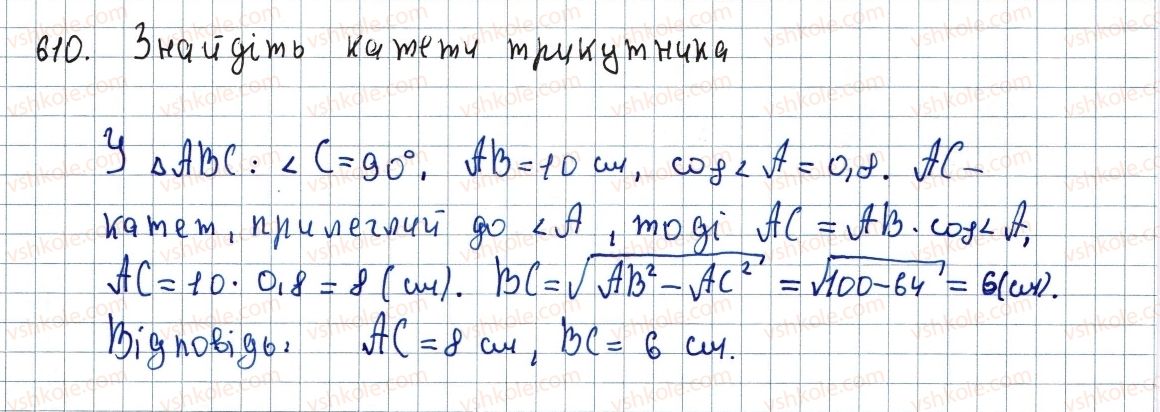 610. Знайдіть катети трикутника
У △ABC: ∠C = 90°, AB = 10 см, cos∠A = 0,8. AC –
катет, прилеглий до ∠A, тоді AC = AB · cos∠A,
AC = 10 · 0,8 = 8 (см). BC = √(AB² – AC²) = √(100 – 64) = 6 (см).
Відповідь: AC = 8 см, BC = 6 см.